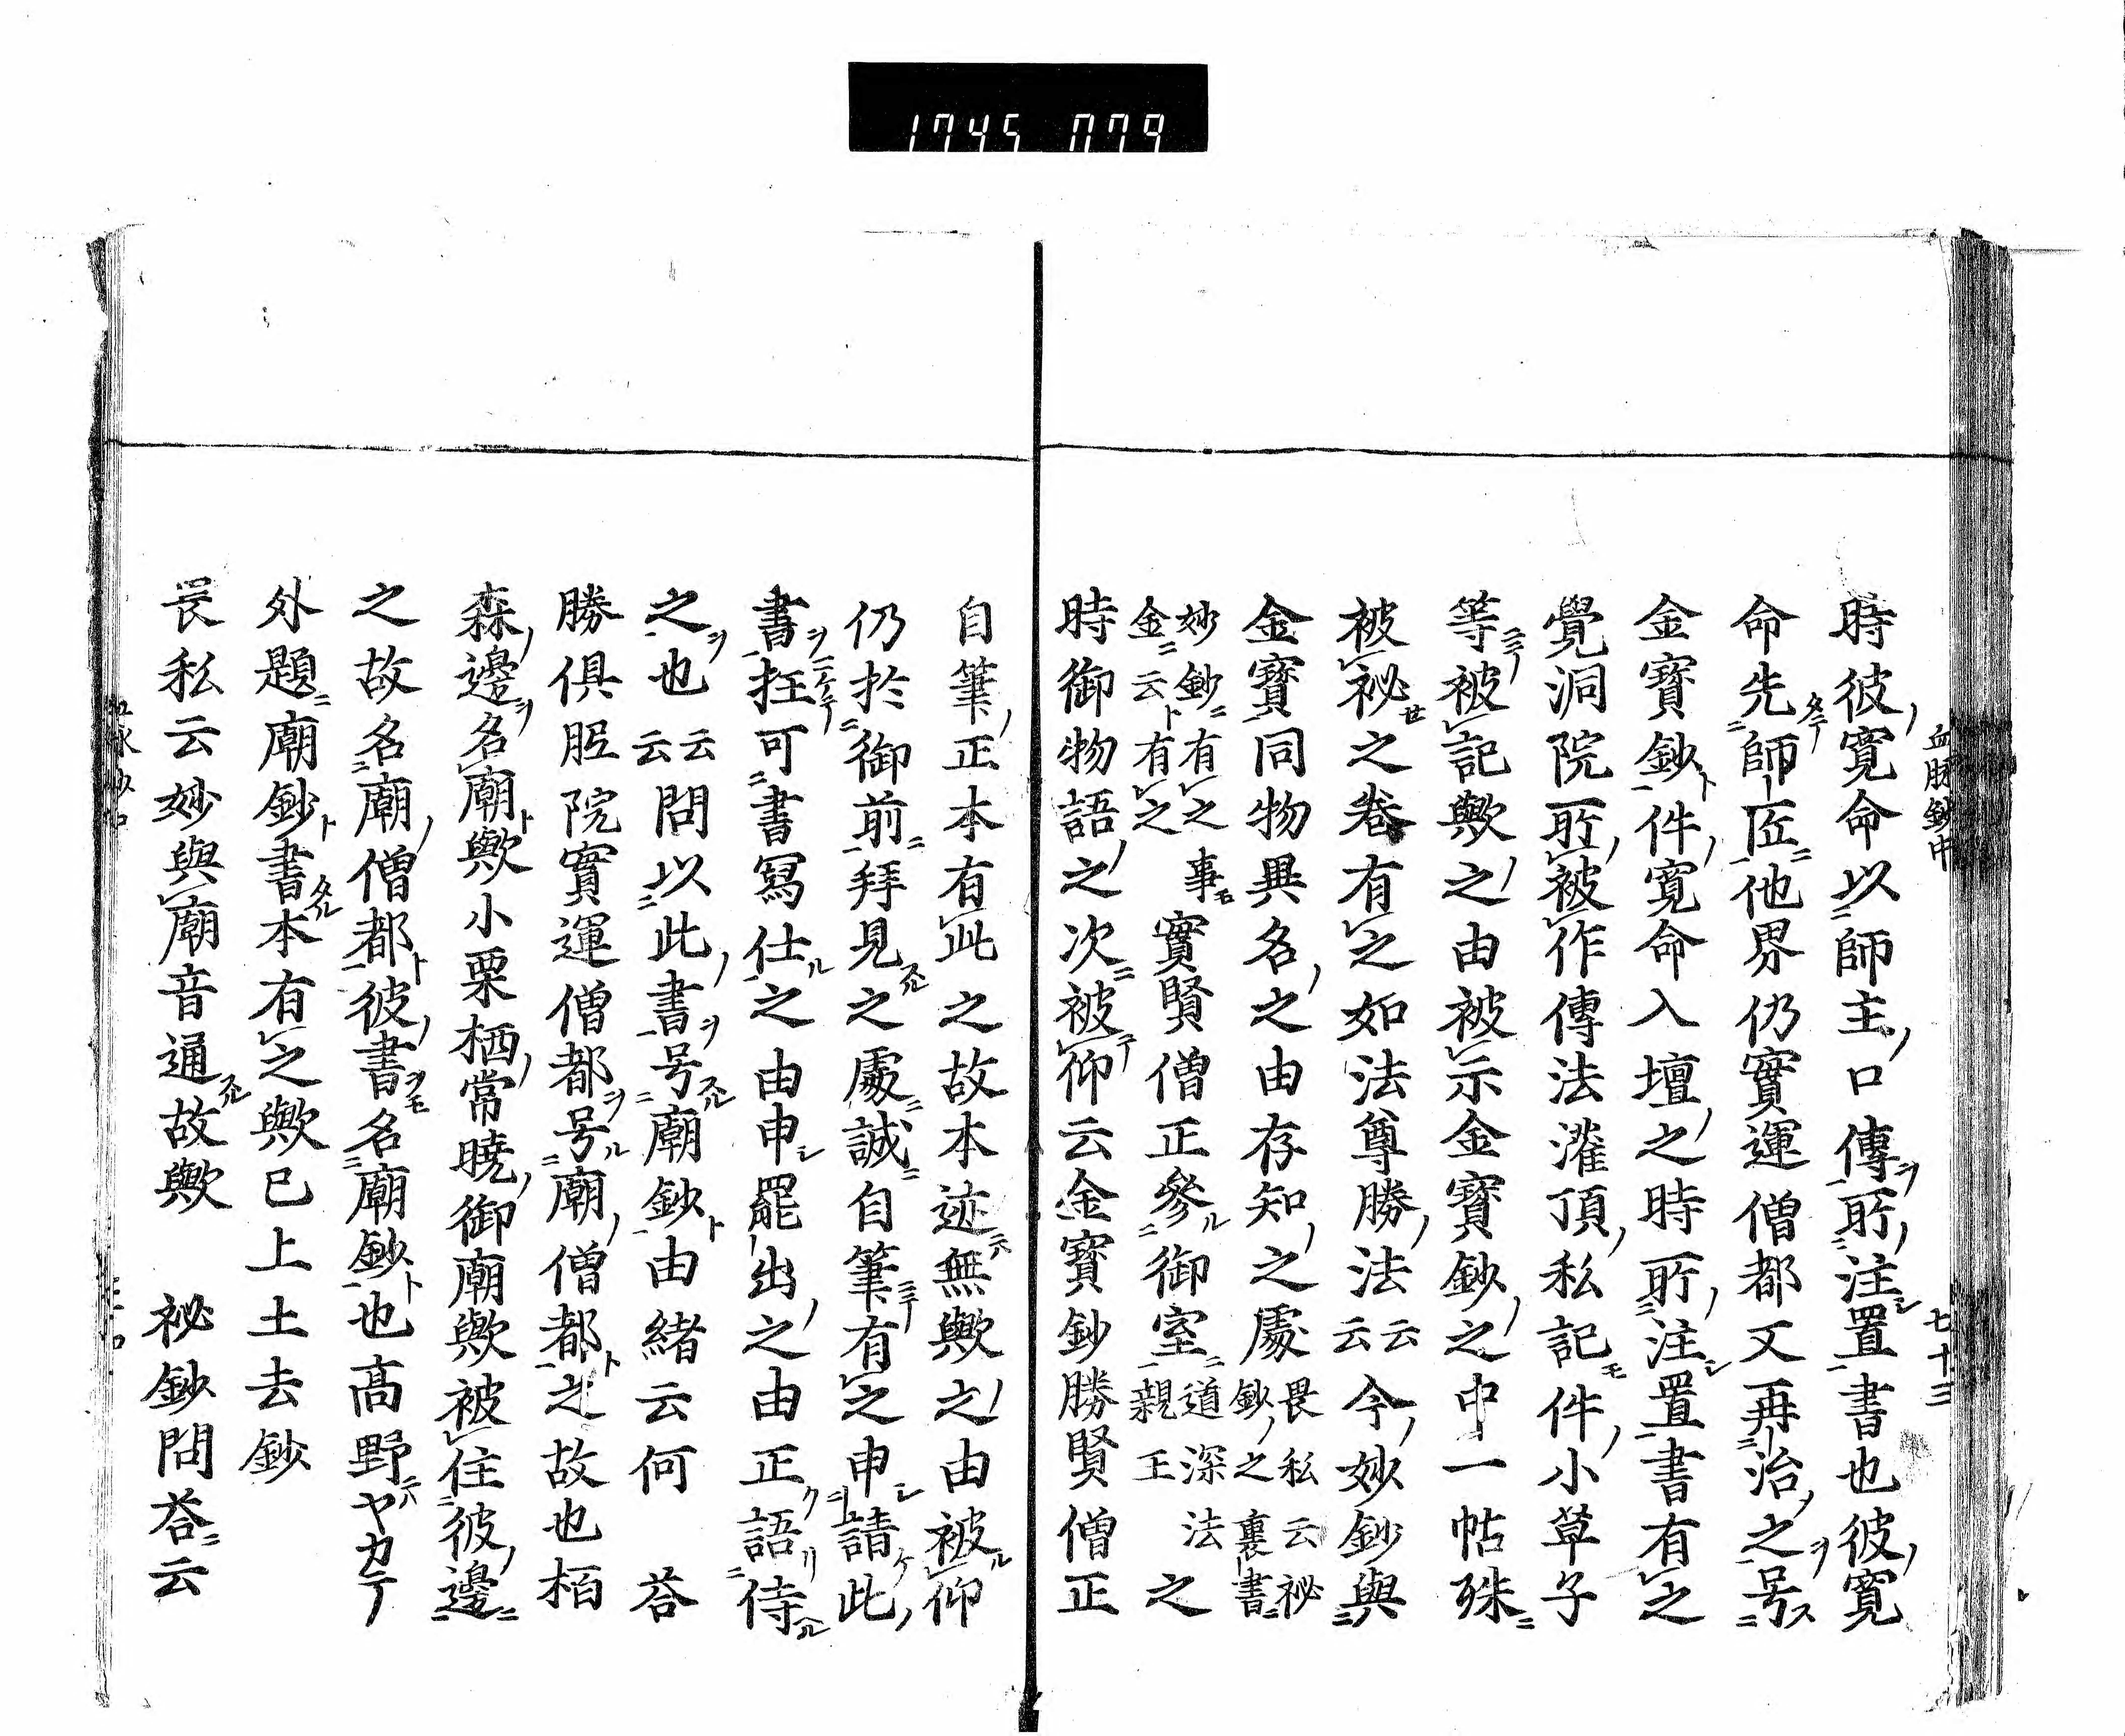 1745 079
血脉鈔中
七十三
時彼寛命以師主口傳所注置書也彼寛
命先師匠他界仍實運僧都又再治之号
金寳鈔件寛命入壇之時所注置書有之
覺洞院所被作傳法灌頂私記件小草子
等被記歟之由被示金寳鈔之中一帖殊
被祕之巻有之如法尊勝法云云今妙鈔與
金寳同物異名之由存知之處畏私云祕鈔之裏書
妙鈔有之事金云有之實賢僧正參御室道深法親王之
時御物語之次被仰云金寳鈔勝賢僧正
自筆正本有此之故本迹無歟之由被仰
仍於御前拜見之處誠自筆有之申請此
書抂可書寫仕之由申罷出之由正語侍
之也云云問以此書号廟鈔由緒云何 荅
勝俱胝院實運僧都号廟僧都之故也栢
森邊名廟歟小栗栖常曉御廟歟被住彼邊
之故名廟僧都彼書名廟鈔也髙野ヤカテ
外題廟鈔書本有之歟已上土去鈔
畏私云妙與廟音通故歟 祕鈔問荅云